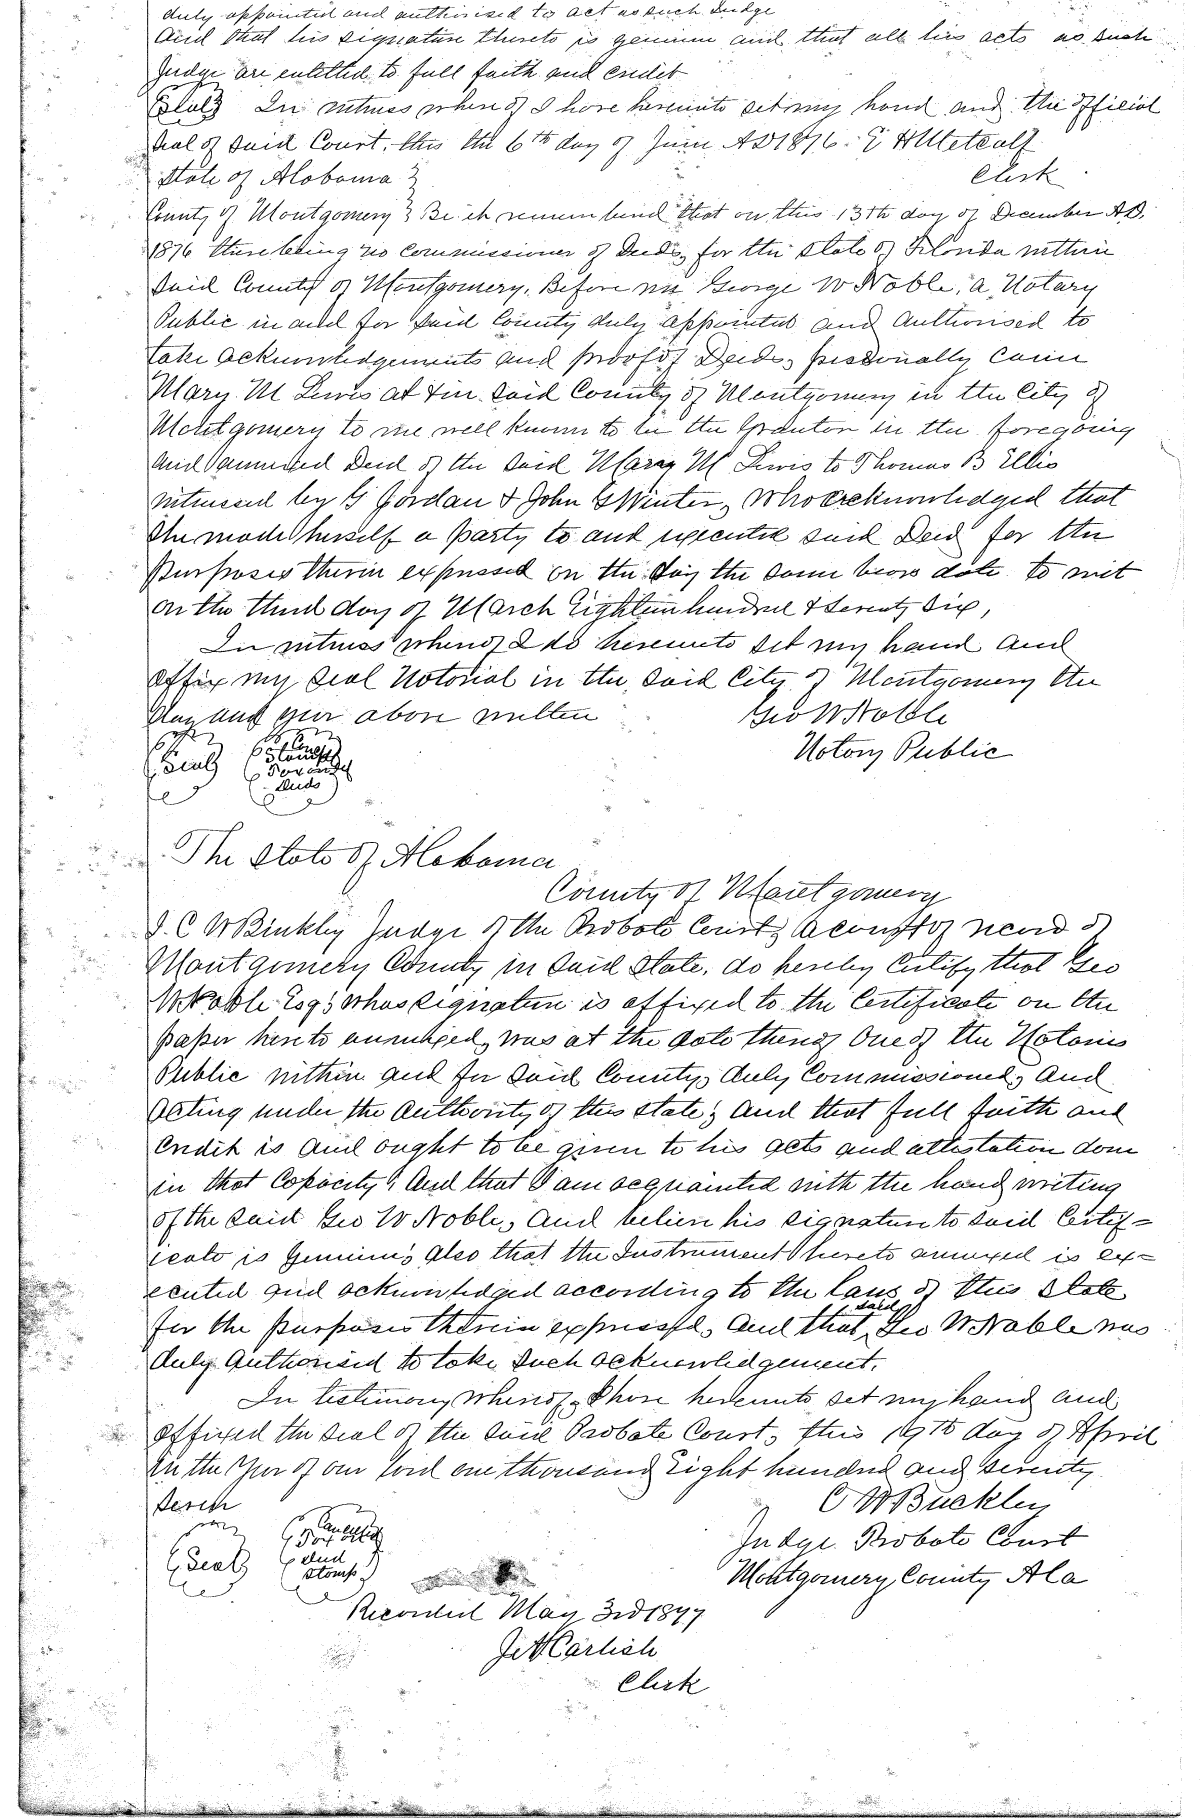 duly appointed and authorised to act as such Judge
and that his signature thereto is genuine and that all his acts as such
Judge are entitled to full faith and credit
Seal In witness whereof I have hereunto set my hand and the official
seal of said Court, this the 6th day of June AD 1876. E H Metcalf
Clerk
State of Alabama
County of Montgomery Be it remembered that on this 13th day of December A.D.
1876 there being no commissioner of Deeds, for the State of Florida within
said County of Montgomery, Before me George W Noble, a Notary
Public in and for said County duly appointed and Authorised to
take acknowledgements and proof of Deeds, personally came
Mary M Lewis at & in said County of Montgomery in the City of
Montgomery to me well known to be the Grantor in the foregoing
and annexed Deed of the said Mary M Lewis to Thomas B Ellis
witnessed by G Jordan & John G Winter, who acknowledged that
she made herself a party to and executed said Deed for the
purposes therein expressed on the day the same bears date to wit
on the third day of March Eighteen hundred & Seventy Six,
In witness whereof I do hereunto set my hand and
affix my seal Notorial in the said City of Montgomery the
day and year above written Geo W Noble
Notary Public
Seal
Deeds
The State of Alabama
County of Montgomery
I. C W Buckley Judge of the Probate Court, a court of record of
Montgomery County in said State, do hereby Certify that Geo
W Noble Esq; whos signature is affixed to the Certificate on the
paper hereto annexed, was at the date thereof One of the Notaries
Public within and for said County, duly Commissioned, and
acting under the Authority of this state; and that full faith and
credit is and ought to be given to his acts and attestation done
in that Capacity, And that I am acquainted with the hand writing
of the said Geo W Noble, and believe his signature to said Certif=
icate is Genuine; also that the Instrument hereto annexed is ex=
ecuted and acknowledged according to the laws of this State
for the purposes therein expressed, and that said Geo W Noble was
duly Authorised to take such acknowledgement.
In testimony whereof, I have hereunto set my hand and
affixed the seal of the said Probate Court, this 19th day of April
in the Year of our Lord one thousand Eight hundred and seventy
seven C W Buckley
Judge Probate Court
Montgomery County Ala
Seal
Canceled
and
stamp
Recorded May 3rd 1877
Clerk